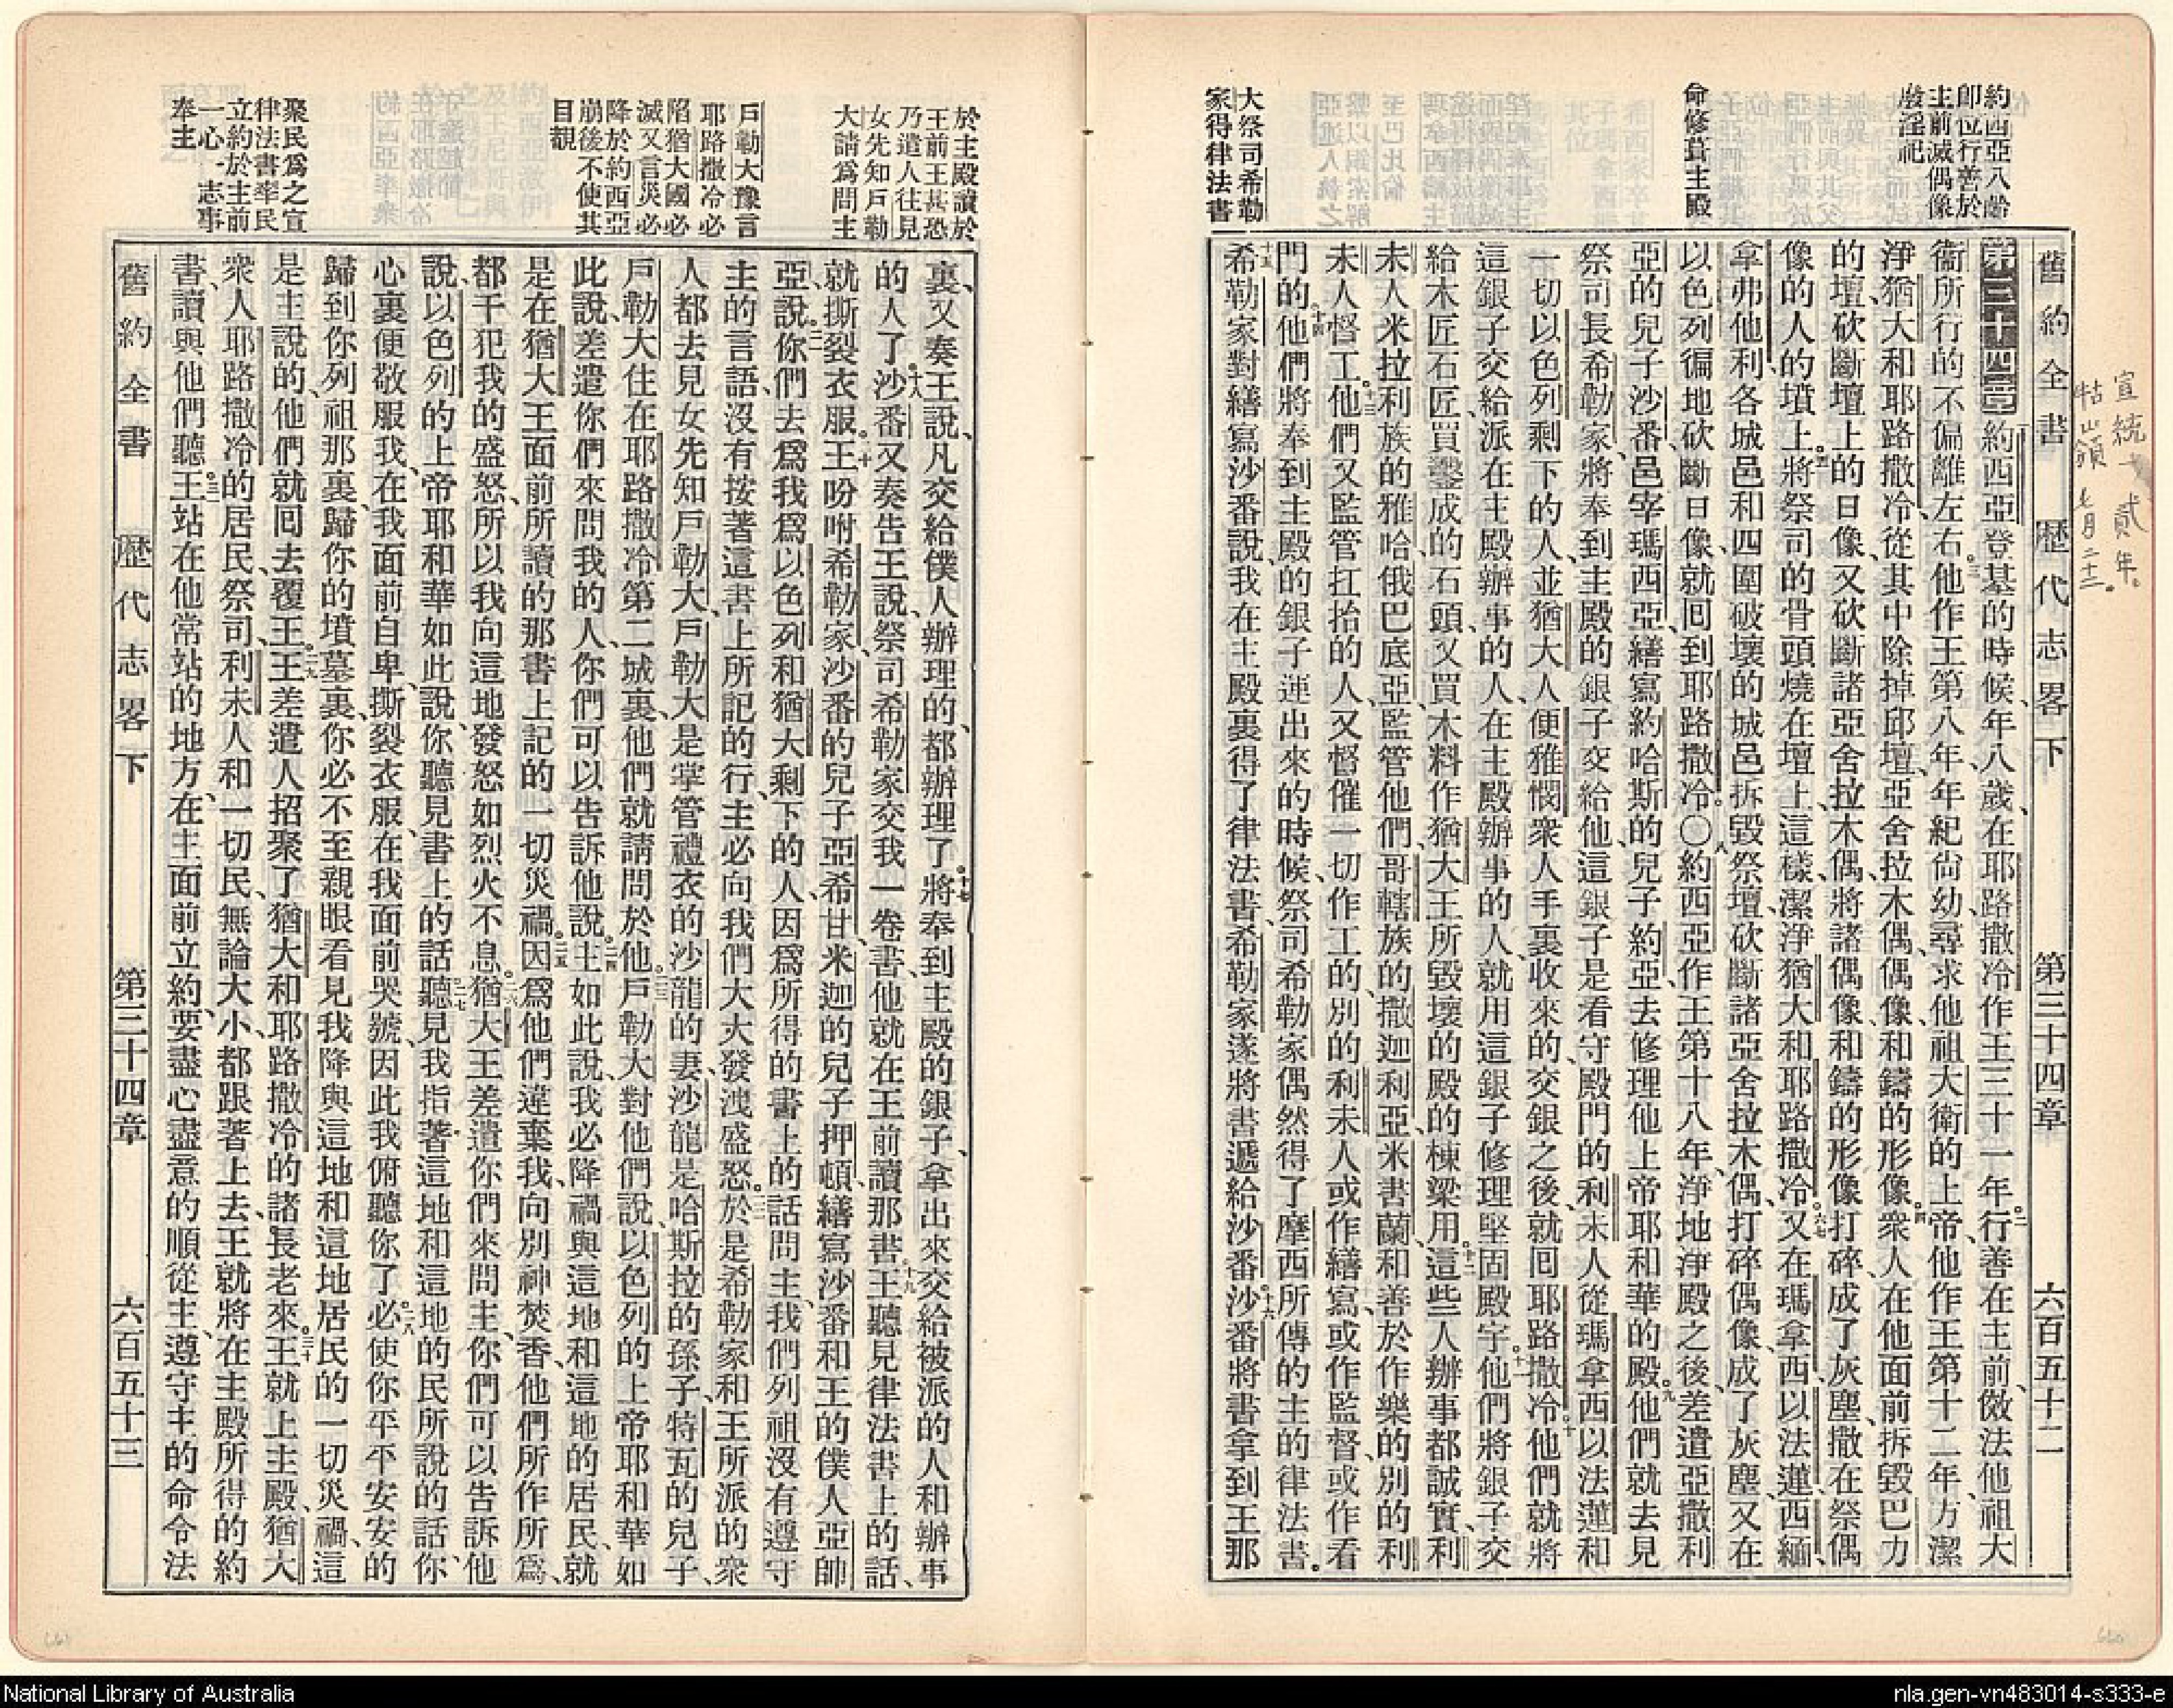 宣統貳年。
牯山嶺 七月二十二。
舊約全書 歷代志畧下 第三十四章 六百五十二
約西亞八齡
即位行善於
主前滅偶像
廢淫祀
命修葺主殿
大祭司希勒
家得律法書
第三十四章 一約西亞登基的時候、年八歲、在耶路撒冷作王三十一年。二行善在主前、傚法他祖大
衞所行的、不偏離左右。三他作王第八年、年紀尙幼、尋求他祖大衞的上帝、他作王第十二年、方潔
淨猶大和耶路撒冷、從其中除掉邱壇、亞舍拉木偶、偶像、和鑄的形像。四衆人在他面前拆毀巴力
的壇、砍斷壇上的日像、又砍斷諸亞舍拉木偶、將諸偶像、和鑄的形像打碎、成了灰塵、撒在祭偶
像的人的墳上。五將祭司的骨頭燒在壇上、這樣潔淨猶大和耶路撒冷。六七又在瑪拿西、以法蓮、西緬、
拿弗他利、各城邑和四圍破壞的城邑、拆毀祭壇、砍斷諸亞舍拉木偶、打碎偶像、成了灰塵、又在
以色列徧地砍斷日像、就囘到耶路撒冷。〇八約西亞作王第十八年、淨地淨殿之後、差遣亞撒利
亞的兒子沙番、邑宰瑪西亞、繕寫約哈斯的兒子約亞去修理他上帝耶和華的殿。九他們就去見
祭司長希勒家、將奉到主殿的銀子交給他、這銀子是看守殿門的利未人從瑪拿西以法蓮和
一切以色列剩下的人、並猶大人便雅憫衆人手裏收來的、交銀之後、就囘耶路撒冷。十他們就將
這銀子交給派在主殿辦事的人、在主殿辦事的人、就用這銀子修理堅固殿宇。十一他們將銀子交
給木匠石匠、買鑿成的石頭、又買木料作猶大王所毀壞的殿的棟梁用。十二這些人辦事都誠實、利
未人米拉利族的雅哈俄巴底亞、監管他們、哥轄族的撒迦利亞、米書蘭、和善於作樂的別的利
未人督工。十三他們又監管扛抬的人、又督催一切作工的、別的利未人或作繕寫、或作監督、或作看
門的。十四他們將奉到主殿的銀子運出來的時候、祭司希勒家偶然得了摩西所傳的主的律法書。
十五希勒家對繕寫沙番說、我在主殿裏得了律法書、希勒家遂將書遞給沙番。十六沙番將書拿到王那
於主殿讀於
王前王甚恐
乃遣人往見
女先知戶勒
大請爲問主
戶勒大豫言
耶路撒冷必
陷猶大國必
滅又言災必
降於約西亞
崩後不使其
目覩
聚民爲之宣
律法書率民
立約於主前
一心一志事
奉主
裏、又奏王說、凡交給僕人辦理的、都辦理了。十七將奉到主殿的銀子、拿出來交給被派的人和辦事
的人了。十八沙番又奏告王說、祭司希勒家交我一卷書、他就在王前讀那書。十九王聽見律法書上的話、
就撕裂衣服。二十王吩咐希勒家、沙番的兒子亞希甘、米迦的兒子押頓、繕寫沙番和王的僕人亞帥
亞、說。二一你們去爲我爲以色列和猶大剩下的人、因爲所得的書上的話問主、我們列祖沒有遵守
主的言語、沒有按著這書上所記的行、主必向我們大大發洩盛怒。二二於是希勒家和王所派的衆
人都去見女先知戶勒大、戶勒大是掌管禮衣的沙龍的妻、沙龍是哈斯拉的孫子、特瓦的兒子、
戶勒大住在耶路撒冷第二城裏、他們就請問於他。二三戶勒大對他們說、以色列的上帝耶和華如
此說、差遣你們來問我的人、你們可以告訴他說。二四主如此說、我必降禍與這地和這地的居民、就
是在猶大王面前所讀的那書上記的一切災禍。二五因爲他們違棄我、向別神焚香、他們所作所爲、
都干犯我的盛怒、所以我向這地發怒如烈火不息。二六猶大王差遣你們來問主、你們可以告訴他
說、以色列的上帝耶和華如此說、你聽見書上的話。二七聽見我指著這地和這地的民所說的話、你
心裏便敬服我、在我面前自卑、撕裂衣服、在我面前哭號、因此我俯聽你了。二八必使你平平安安的
歸到你列祖那裏、歸你的墳墓裏、你必不至親眼看見我降與這地和這地居民的一切災禍、這
是主說的、他們就囘去覆王。二九王差遣人招聚了猶大和耶路撒冷的諸長老來。三十王就上主殿、猶大
衆人、耶路撒冷的居民、祭司、利未人和一切民、無論大小、都跟著上去、王就將在主殿所得的約
書、讀與他們聽。三一王站在他常站的地方、在主面前立約、要盡心盡意的順從主、遵守主的命令法
舊約全書 歷代志畧下 第三十四章 六百五十三
National Library of Australia
nla.gen-vn483014-s333-e